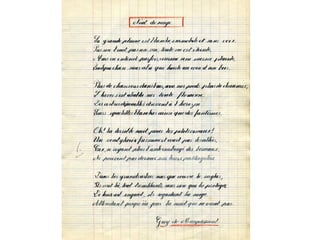 Nuit de neige
La grande plaine est blanche, immobile et sans voix.
Pas un bruit, pas un son, toute vie est éteinte,
Mais on entend parfois, comme une morne plainte,
Quelque chien sans abri qui hurle au coin d'un bois.
Plus de chansons dans l'air, sous nos pieds plus de chaumes,
L'hiver s'est abattu sur toute floraison.
Des arbres dépouillés dressent à l'horizon
Leurs squelettes blanchis ainsi que des fantômes.
Oh! La terrible nuit pour les petits oiseaux!
Un vent glacé frissonne et court par les allées,
Eux, n'ayant plus l'asile ombragé des berceaux,
Ne peuvent pas dormir sur leurs pattes gelées.
Dans les grands arbres nus que couvre le verglas,
Ils sont là, tout tremblants, sans rien qui les protège,
De leur œil inquiet, ils regardent la neige,
Attendant jusqu'au jour la nuit qui ne vient pas.
Guy de Maupassant